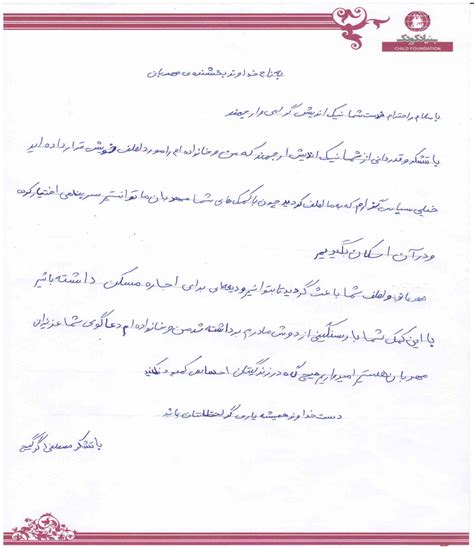 بنیاد کودک
CHILD FOUNDATION
به نام خداوند بخشنده‌ی مهربان
با سلام و احترام خدمت شما نیک اندیش گرامی و ارجمند
با تشکر و قدردانی از شما نیک اندیش ارجمند که من و خانواده ام را مورد لطف خویش قرار داده اید
خیلی سپاس گزارم که به ما لطف کردید چون با کمک های شما مهربان ما توانستیم سرپناهی اختیار کرده
و در آن اسکان بگیریم
مهربانی و لطف شما باعث گردید تا بتوانیم ودیعه‌ای برای اجاره مسکن داشته باشیم
با این کمک شما بار سنگینی از دوش مادرم برداشته شد من و خانواده ام دعاگوی شما عزیزان
مهربان هستیم امیدواریم هیچ گاه در زندگیتان احساس کمبود نکنید
دست خداوند همیشه یاری گر لحظاتتان باشد
با تشکر مصطفی